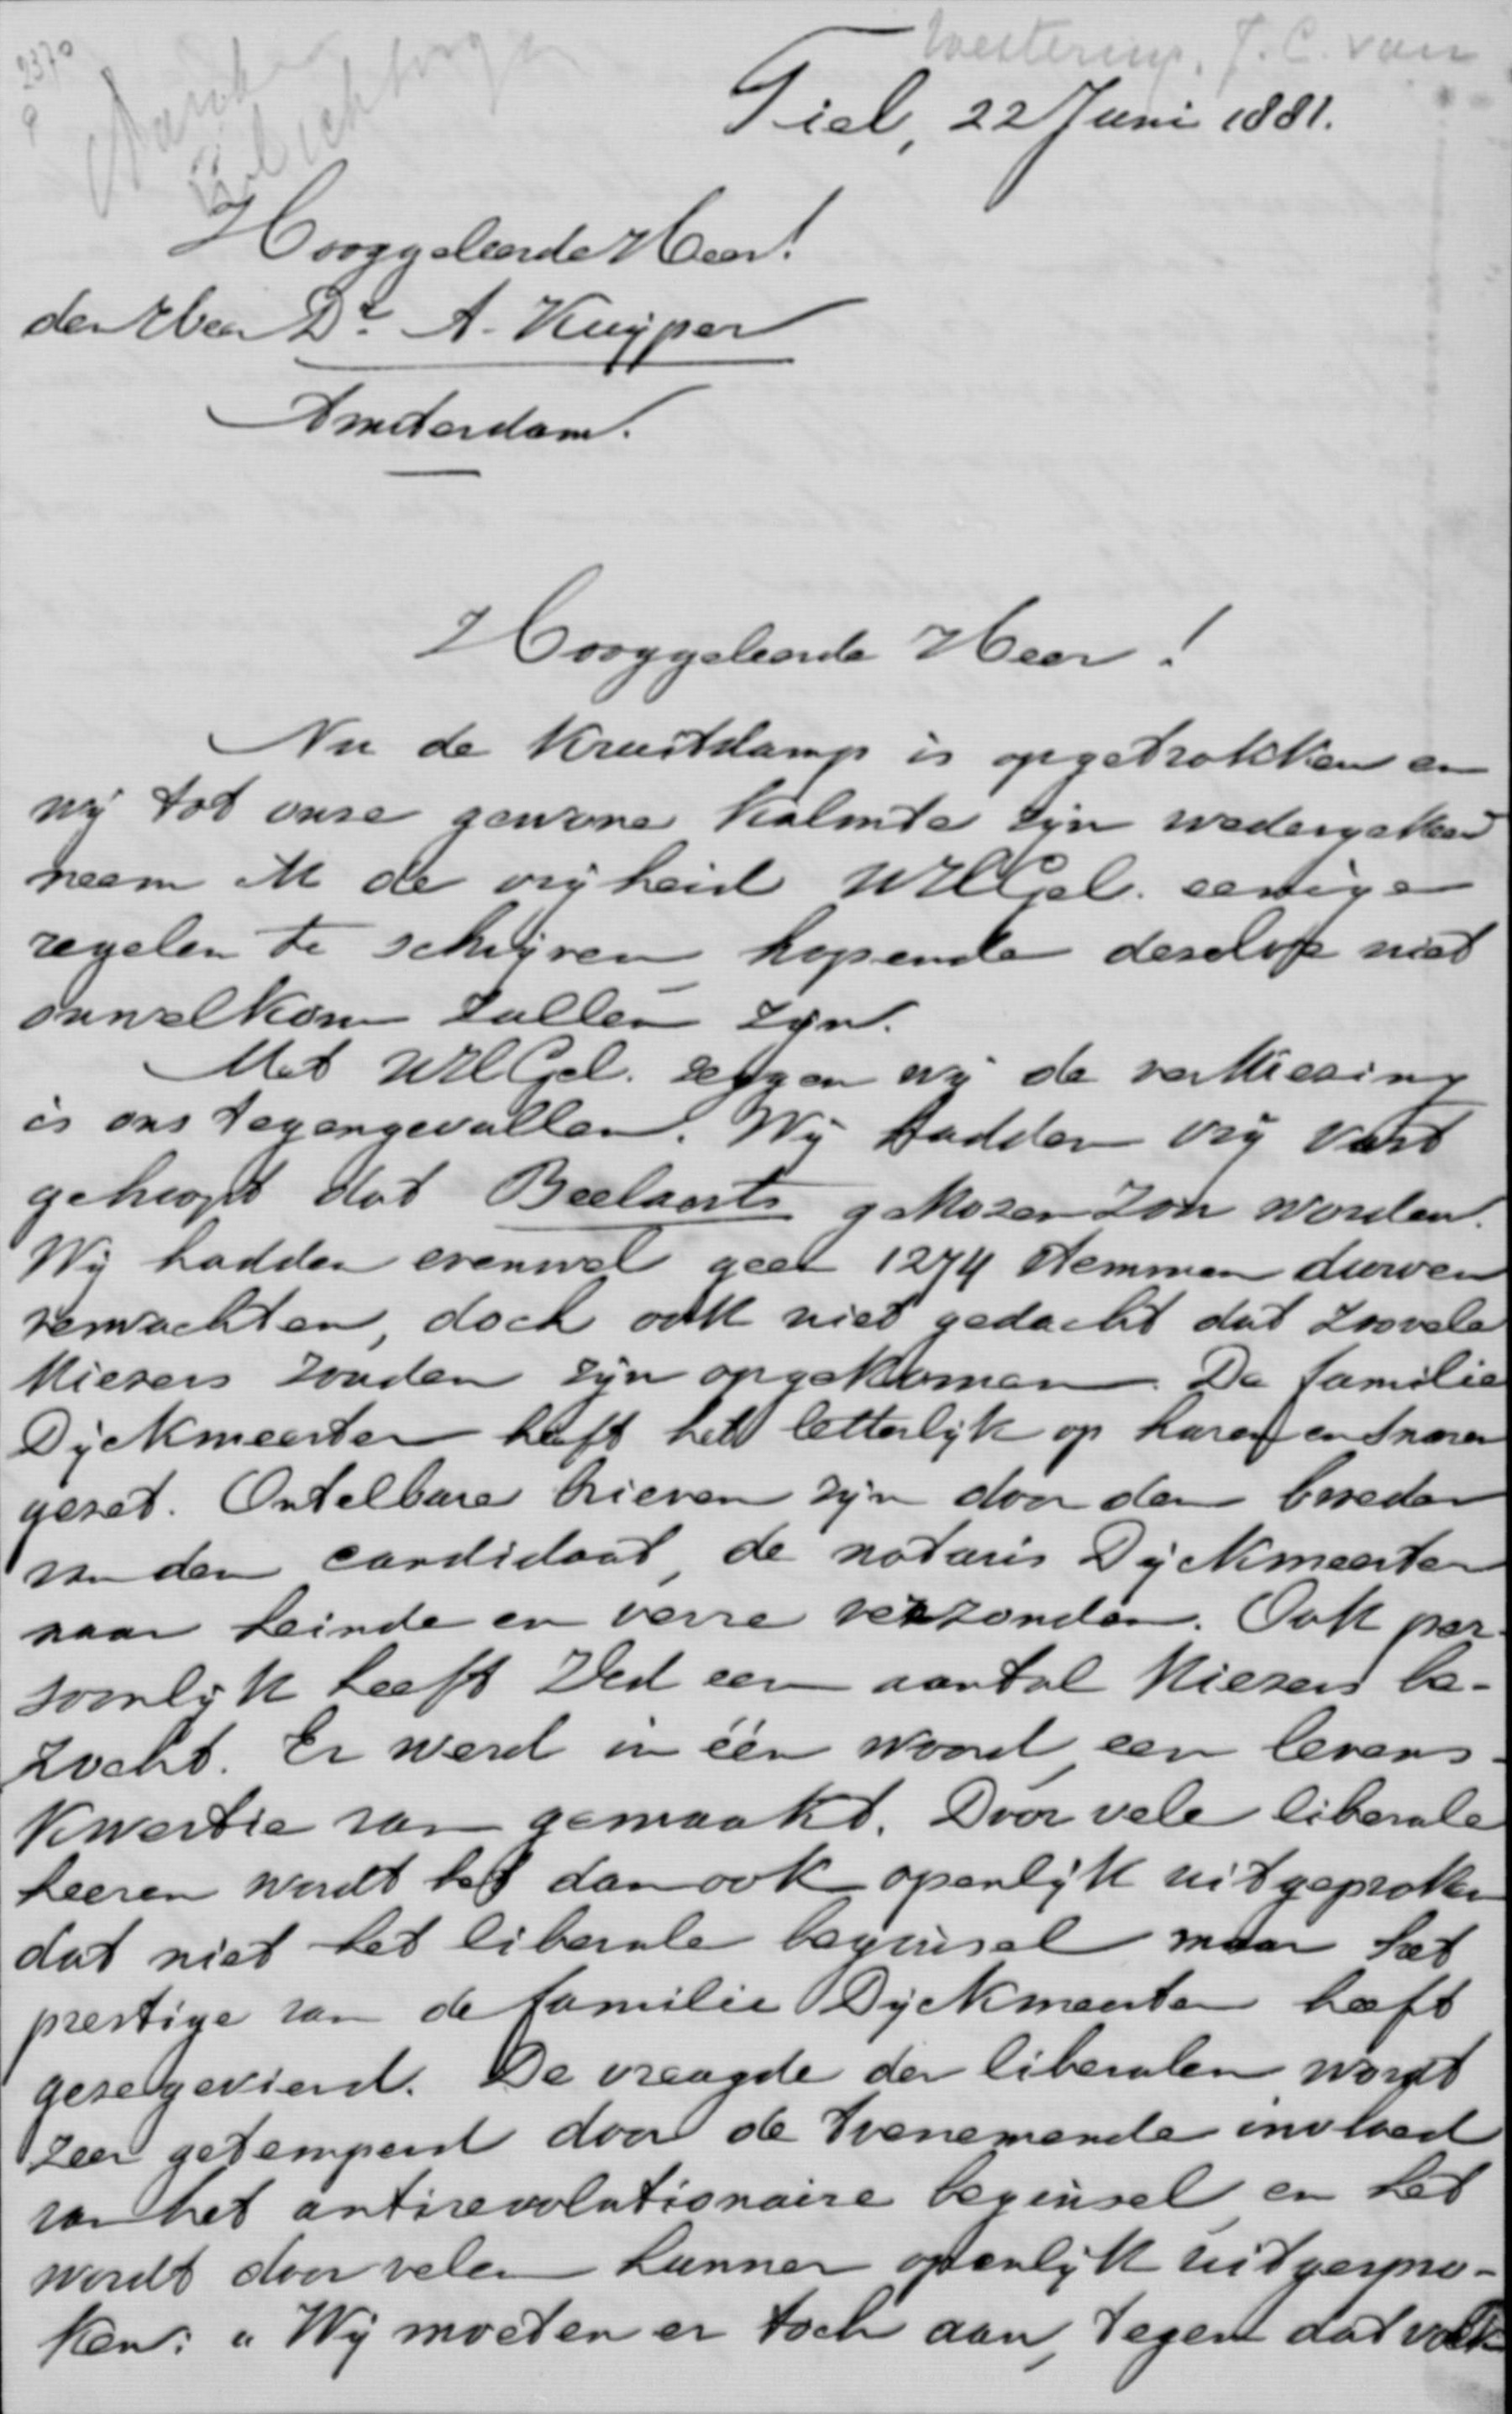 2370
9
Westering, J. C. van
Tiel, 22 Juni 1881.
Hooggeleerde Heer!
den Heer Dr. A. Kuyper
Amsterdam.
Hooggeleerde Heer!
Nu de kruitdamp is opgetrokken en
wij tot onze gewone kalmte zijn wedergekeerd
neem ik de vrijheid UHGel. eenige
regelen te schrijven, hopende dezelve niet
onwelkom zullen zijn.
Met UHGel. zeggen wij de verkiezing
is ons tegengevallen. Wij hadden vrij vast
gehoopt dat Beelaerts gekozen zou worden.
Wij hadden evenwel geen 1274 stemmen durven
verwachten, doch ook niet gedacht dat zoovele
kiezers zouden zijn opgekomen. De familie
Dijckmeester heeft het letterlijk op haren en snaren
gezet. Ontelbare brieven zijn door den broeder
van den candidaat, de notaris Dijckmeester
naar heinde en verre verzonden. Ook per-
soonlijk heeft ZEd een aantal kiezers be-
zocht. Er werd in één woord, een levens-
kwestie van gemaakt. Door vele liberale
heeren wordt het dan ook openlijk uitgeproken
dat niet het liberale beginsel maar het
prestige van de familie Dijckmeester heeft
gezegevierd. De vreugde der liberalen wordt
zeer getemperd door de toenemende invloed
van het antirevolutionaire beginsel, en het
wordt door velen hunner openlijk uitgespro-
ken: "Wij moeten er toch aan, tegen dat volk